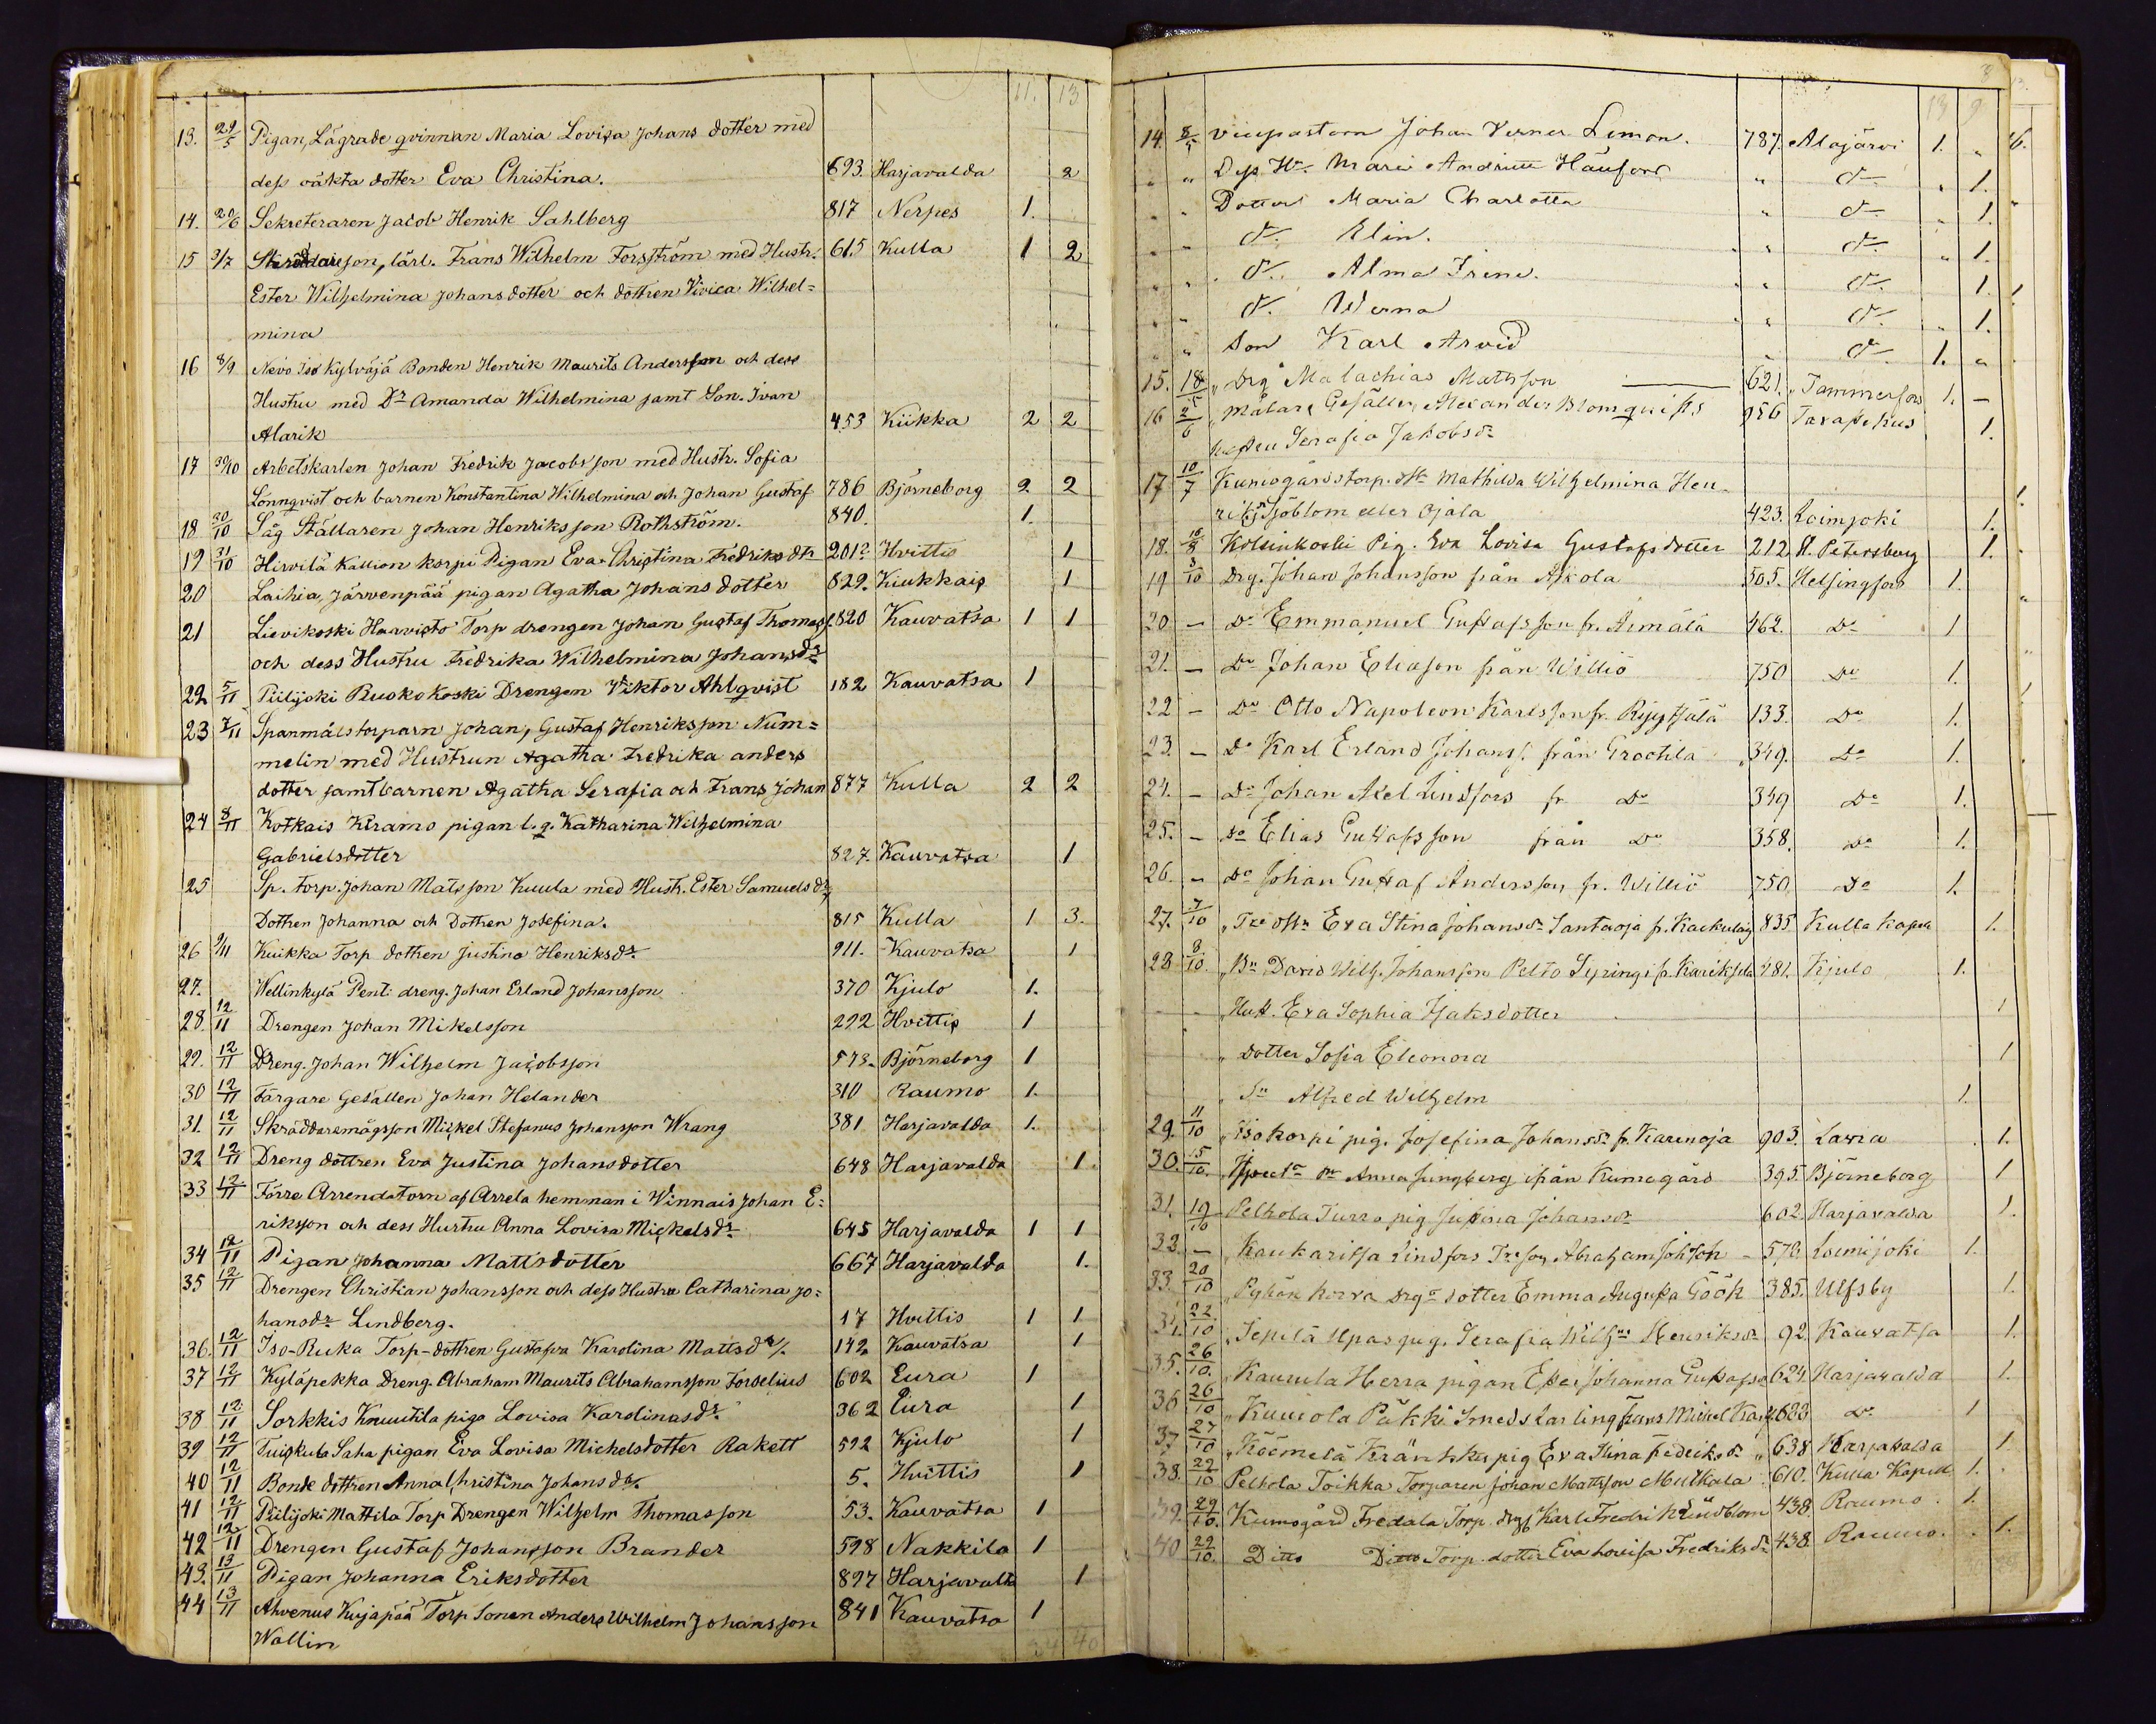 11. 13
13. 29/5 Pigan, Lägrade qvinnan Maria Lovisa Johans dotter med
dess oäkta dotter Eva Christina. 693. Harjavalda 2
14. 20/6 Sekreteraren Jacob Henrik Sahlberg 817 Nerpes 1.
15 3/7 Skräddareson, lärl. Frans Wilhelm Forsström med Hustr. 615 Kulla 1 2
Ester Wilhelmina Johansdotter och dottren Vivica Wilhel=
mina
16 8/9 Nevo Iso Kylväjä Bonden Henrik Maurits Andersson och dess
Hustru med Dr Amanda Wilhelmina samt Son. Ivan
Alarik 453 Kiikka 2 2
17 30/10 Arbetskarlen Johan Fredrik Jacobsson med Hustr. Sofia
Lönnqvist och barnen Konstantina Wilhelmina och Johan Gustaf 786 Björneborg 2 2
18 30/10 Såg Ställaren Johan Henriksson Rothström. 840. 1.
19 31/10 Hirvilä Kallion korpi Pigan Eva Christina Fredriks dtr 201? Hvittis 1
20 Laihia, Järvenpää pigan Agatha Johans dotter 829. Kiukkais 1
21 Lievikoski Harvisto Torp drengen Johan Gustaf Thomass. 820 Kauvatsa 1 1
och dess Hustru Fredrika Wilhelmina Johansdr
22 5/11 Piilijoki Ruokokoski Drengen Viktor Ahlqvist 182 Kauvatsa 1
23 7/11 Spanmålstorparn Johan, Gustaf Henriksson Num=
melin med Hustrun Agatha Fredrika anders
dotter samt barnen Agatha Serafia och Frans Johan 877 Kulla 2 2
24 8/11 Kotkais Kramo pigan l. q. Katharina Wilhelmina
Gabrielsdotter 827. Kauvatsa 1
25 Sp. torp. Johan Matsson Kuula med Hustr. Ester Samuelsdr,
Dottren Johanna och Dottren Josefina. 815 Kulla 1 3.
26 9/11 Kuikka Torp dottren Justina Henriksdr. 911. Kauvatsa 1
27. Wellinkylä Penti dreng. Johan Erland Johansson 370 Kjulo 1.
28. 12/11 Drengen Johan Mikelsson 292 Hvittis 1
29. 12/11 Dreng. Johan Wilhelm Jacobsson 573. Björneborg 1
30 12/11 Färgare Gesällen Johan Helander 310 Raumo 1.
31. 12/11 Skräddaremågsson Mickel Stefanus Johansson Wrang 381 Harjavalda 1.
32 12/11 Dreng dottren Eva Justina Johansdotter 648 Harjavalda 1.
33 12/11 Förre Arrendatorn af Arrela hemman i Winnais Johan E=
riksson och dess Hustru Anna Lovisa Mickelsdr 645 Harjavalda 1 1
34 12/11 Pigan Johanna Mattsdotter 667 Harjavalda 1.
35 12/11 Drengen Christian Johansson och dess Hustru Catharina Jo=
hansdr Lindberg. 17 Hvittis 1 1
36. 12/11 Iso-Ruka Torp-dottren Gustafva Karolina Mattsdr/. 142 Kauvatsa 1
37 12/11 Kyläpekka Dreng. Abraham Maurits Abrahamsson Forselius 602 Eura 1
38 12/11 Sorkkis Knuutila piga Lovisa Karolinasdr. 362 Eura 1
39 12/11 Tuiskula Saha pigan Eva Lovisa Michelsdotter Rakett 592 Kjulo 1
40 12/11 Bonde dottren Anna Christina Johansdr/. 5. Hvittis 1
41 12/11 Piilijoki Mattila Torp Drengen Wilhelm Thomasson 53. Kauvatsa 1
42 12/11 Drengen Gustaf Johansson Brander 598 Nakkila 1
43. 13/11 Pigan Johanna Eriksdotter 897 Harjavalta 1
44 13/11 Ahvenus Kujapää Torp Sonen Anders Wilhelm Johansson 841 Kauvatsa 1
Wallin
34 40
3
13 9
14. 8/5 vicepastorn Johan Verner Limon. 787. Alajärvi 1. "
" " Dess Hu. Maria Andriette " d- " 1.
" " Dotter Maria Charlotta " d- " 1.
" " d- Elin. " d- " 1.
" " d- Alma Irene. " d- 1.
" " d- Werna " d- " 1.
" " Son Karl Arvid " d- 1. "
15. 18/5 " Drg Malachias Mattsson 621. " Tammerfors 1. -
16 2/6 " Målare Gesällen Alexander Blomquists 956 Tavastehus
Serafia Jakobsdr 1.
17 10/7 Kumogårdstorp. Mathilda Wilhelmina Hen-
riksdr Sjöblom eller Ojala 423. Loimjoki 1.
18. 18/8 Kolsinkoski Pig. Eva Lovisa Gustafsdotter 212 St. Petersberg 1.
19 3/10 Drg. Johan Johansson från Askola 505. Helsingfors 1.
20 - Do Emmanuel Gustafsson fr. Äimälä 462. Do 1
21. - Do Johan Eliason från Williö 750 Do 1.
22 - Do Otto Napoleon Karlsson fr. 133. Do 1.
23. - Do Karl Erland Johanss. från Grootila 349. Do 1.
24. - Do Johan Axel Lindfors fr. Do 349 Do 1.
25. - Do Elias Gustafsson från Do 358. Do 1.
26. - Do Johan Gustaf Andersson fr. Williö 750. Do 1.
27. 7/10 Eva Stina Johansdr Santaoja fr. 835 Kulla Kapell 1.
28 8/10. " Bn David Wilh. Johansson Pelto Syringi fr. Karitsla 481. Kjulo 1.
- - " Hust. Eva Sophia Isaksdotter 1
" dotter Sofia Eleonora 1
" Sn Alfred Wilhelm 1.
29. 11/10 " Isokorpi pig. Josefina Johansdr fr. Karenoja 903. Lavia 1.
30. 15/10. Anna Ljungberg från Kumogård 395. Björneborg 1
31. 19/10 Pelhola Turro pig Justina Johansdr 602. Harjavalda 1.
32. - " Kaukaritsa Lindfors Trp.son Abraham Johsson - 572. Loimijoki 1.
33. 20/10 " korva Drgs dotter Emma Augusta Göök 385. Ulfsby 1.
34. 22/10 " Sepilä Upas pig. Serafia Wilhna Henriksdr 92. Kauvatsa 1.
35. 26/10. " Kaurula Herra pigan Ester Johanna Gustafsd 624. Harjavalda 1.
36 26/10 " Kuuiola Päkki Smedslärling Frans Michel 633 Do 1
37. 27/10 " Köömilä pig Eva Stina Fredriksdr " 638 Harjavalda 1
38. 29/10 Pelhola Toikka Torparen Johan Mattsson Multkala 610. Kulla Kapell 1.
39. 29/10. Kumogård Fredala Torp. drg. Karl Fredrik Lindblom 438. Raumo 1.
40 29/10. Ditto Ditto Torp. dotter Eva Lovisa Fredriksdr 438. Raumo. 1.